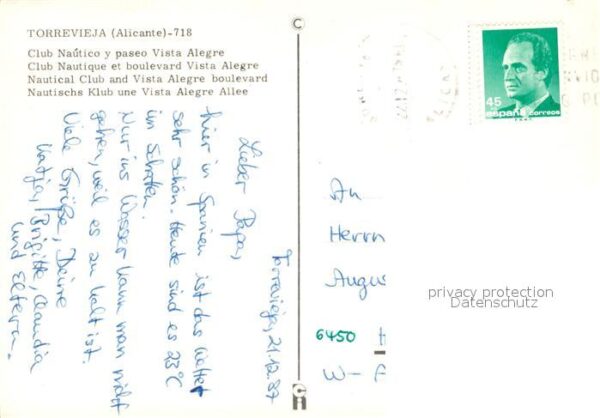 TORREVIEJA (Alicante)-718
Club Naútico y paseo Vista Alegre
Club Nautique et boulevard Vista Alegre
Nautical Club and Vista Alegre boulevard
Nautischs Klub une Vista Alegre Allee
C
45
españa correos
Torrevieja, 21.12.87
Lieber Papa,
hier in Spanien ist das Wetter
sehr schön. Heute sind es 23°C
im Schatten.
Nur ins Wasser kann man nicht
gehen, weil es zu kalt ist.
Viele Grüße, Deine
Katja, Brigitte, Claudia
und Eltern.
An
Herrn
Augus
privacy protection
Datenschutz
6450 H
W-F